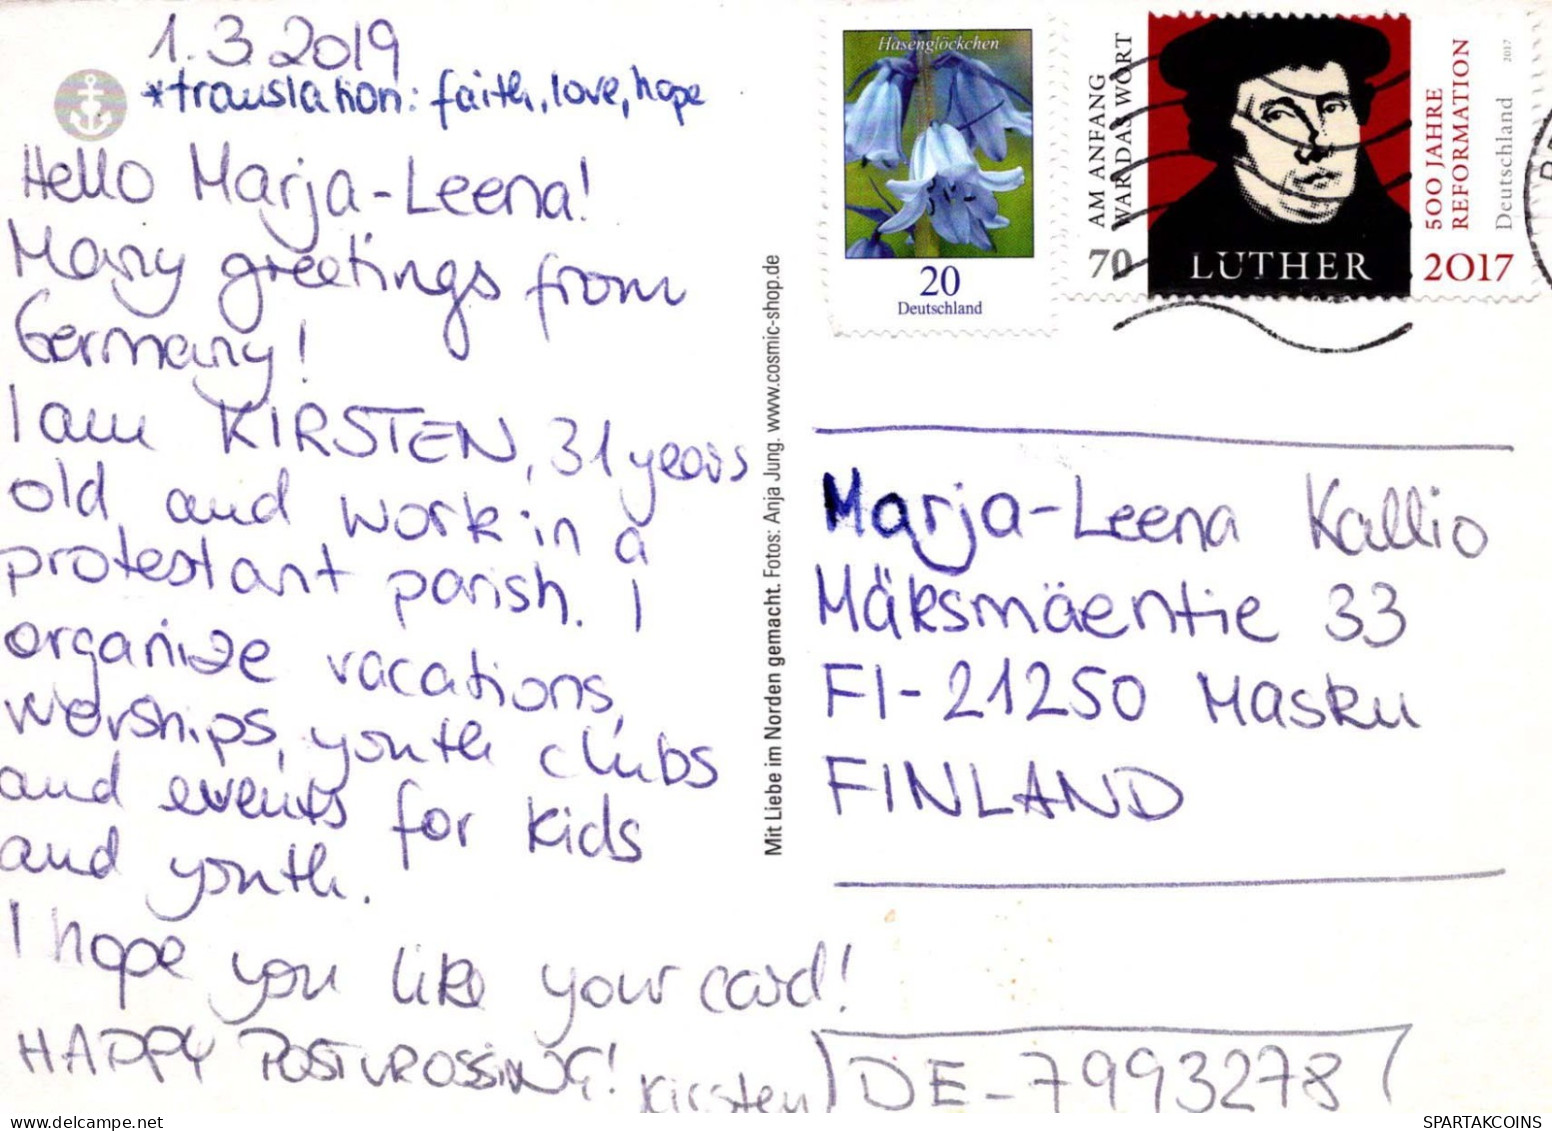 1.3.2019
*translation: faith, love, hope
Hello Marja-Leena!
Many greetings from
Germany!
I am KIRSTEN, 31 years
old, and work in a
protestant parish. I
organize vacations,
worships, youth clubs
and events for kids
and youth.
I hope you like your card!
HAPPY POSTCROSSING!
Kirsten
DE-7993278
Mit Liebe im Norden gemacht. Fotos: Anja Jung. www.cosmic-shop.de
Hasenglöckchen
20
Deutschland
AM ANFANG
WAR DAS WORT
70
LUTHER
500 JAHRE
REFORMATION
2017
Deutschland
2017
Marja-Leena Kallio
Mäksmäentie 33
FI-21250 Masku
FINLAND
SPARTAKCOINS